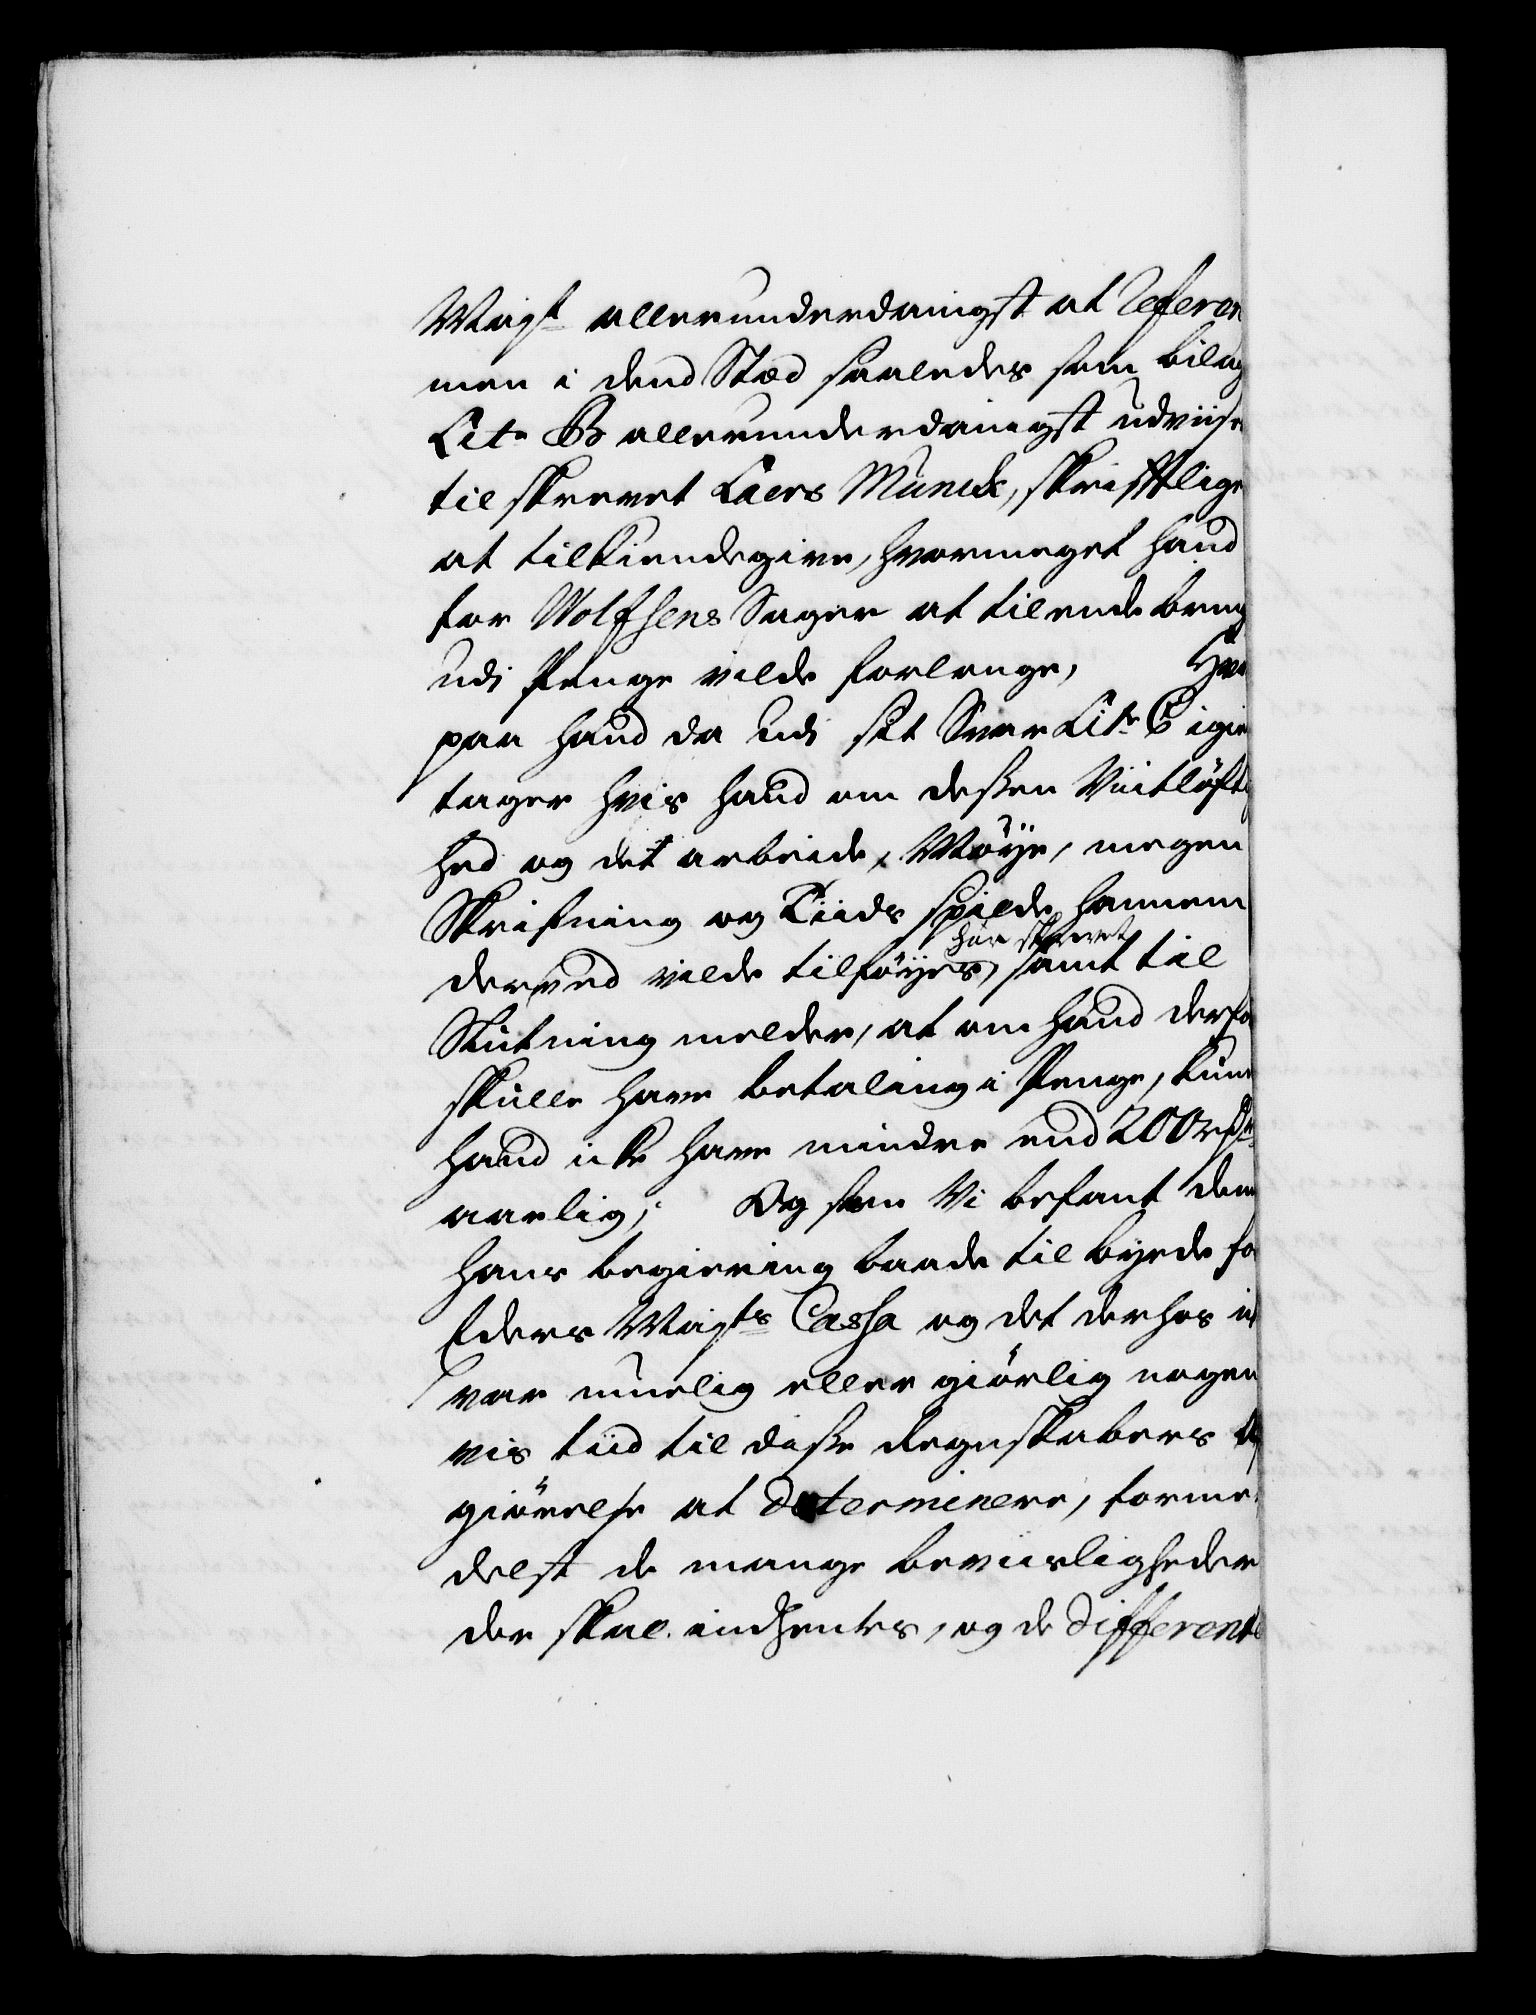 Mayt allerunderdanigst at Referer
men i dend Stæd saaledes som bilag
Lit. B allerunderdanigst udviise
tilskrevet Laers Munck, skrifftlig
at tilkiendegive, hvormeget hand
for Wolfsens Sager at tilende bring
udi Penge vilde forlange, Hvor
paa hand da udi sit Svar Lit. C igien
tager hvis hand om dessen Viitløftig
hed og det arbeide, Møye, megen
Skrifning og Tiids spilde hannem
har skrevet
derved vilde tilføyes, samt til
Slutning melder, at om hand derfo
skulle have betaling i Penge, kun
hand icke have mindre end 200 rd
aarlig; Og som Vi befant den
hans begiering baade til byrde fo
Eders Mayts Cassa og det derhos i
var muelig eller giørlig nogen
vis tiid til disse Regnskabers
giørelse at determinere, forme
delst de mange beviisligheder
der skal indhentes, og de differente